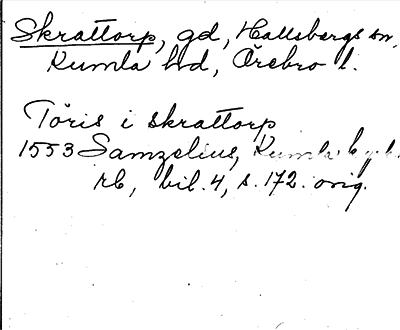 Skrattorp, gd, Hallsbergs sn,
Kumla hd, Örebro l.
Töris i skrattorp
1553 Samzelius, Kumla
rb, bil. 4, s. 172. orig.